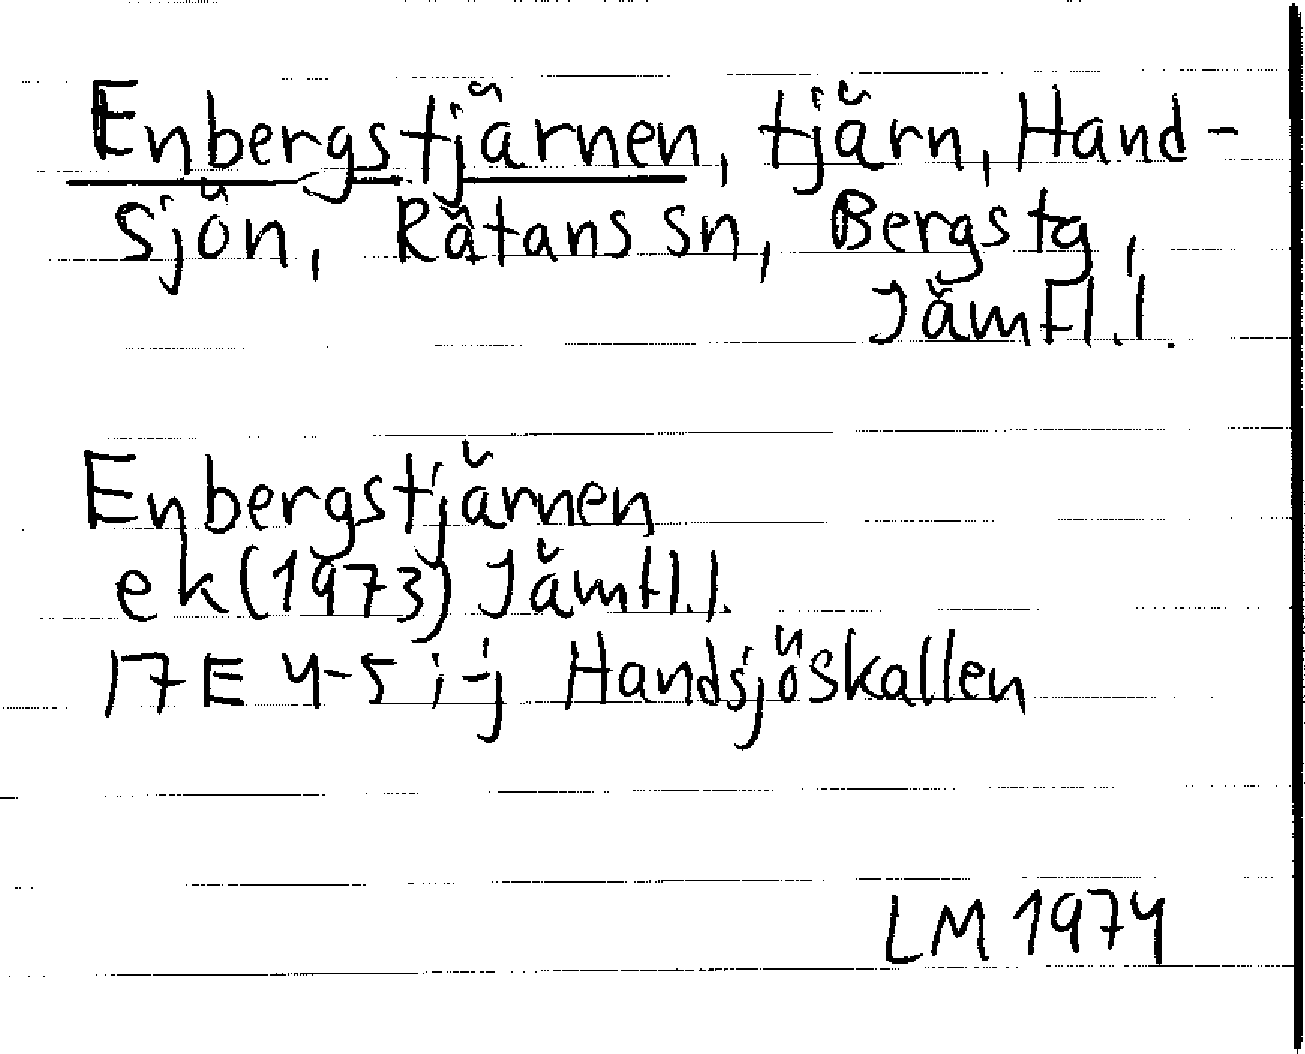 Enbergstjärnen, tjärn, Hand-
sjön, Rätans sn, Bergs tg,
Jämtl.l.
Enbergstjärnen
ek (1973) Jämtl.l.
17E 4-5 i-j Handsjöskallen
LM 1974